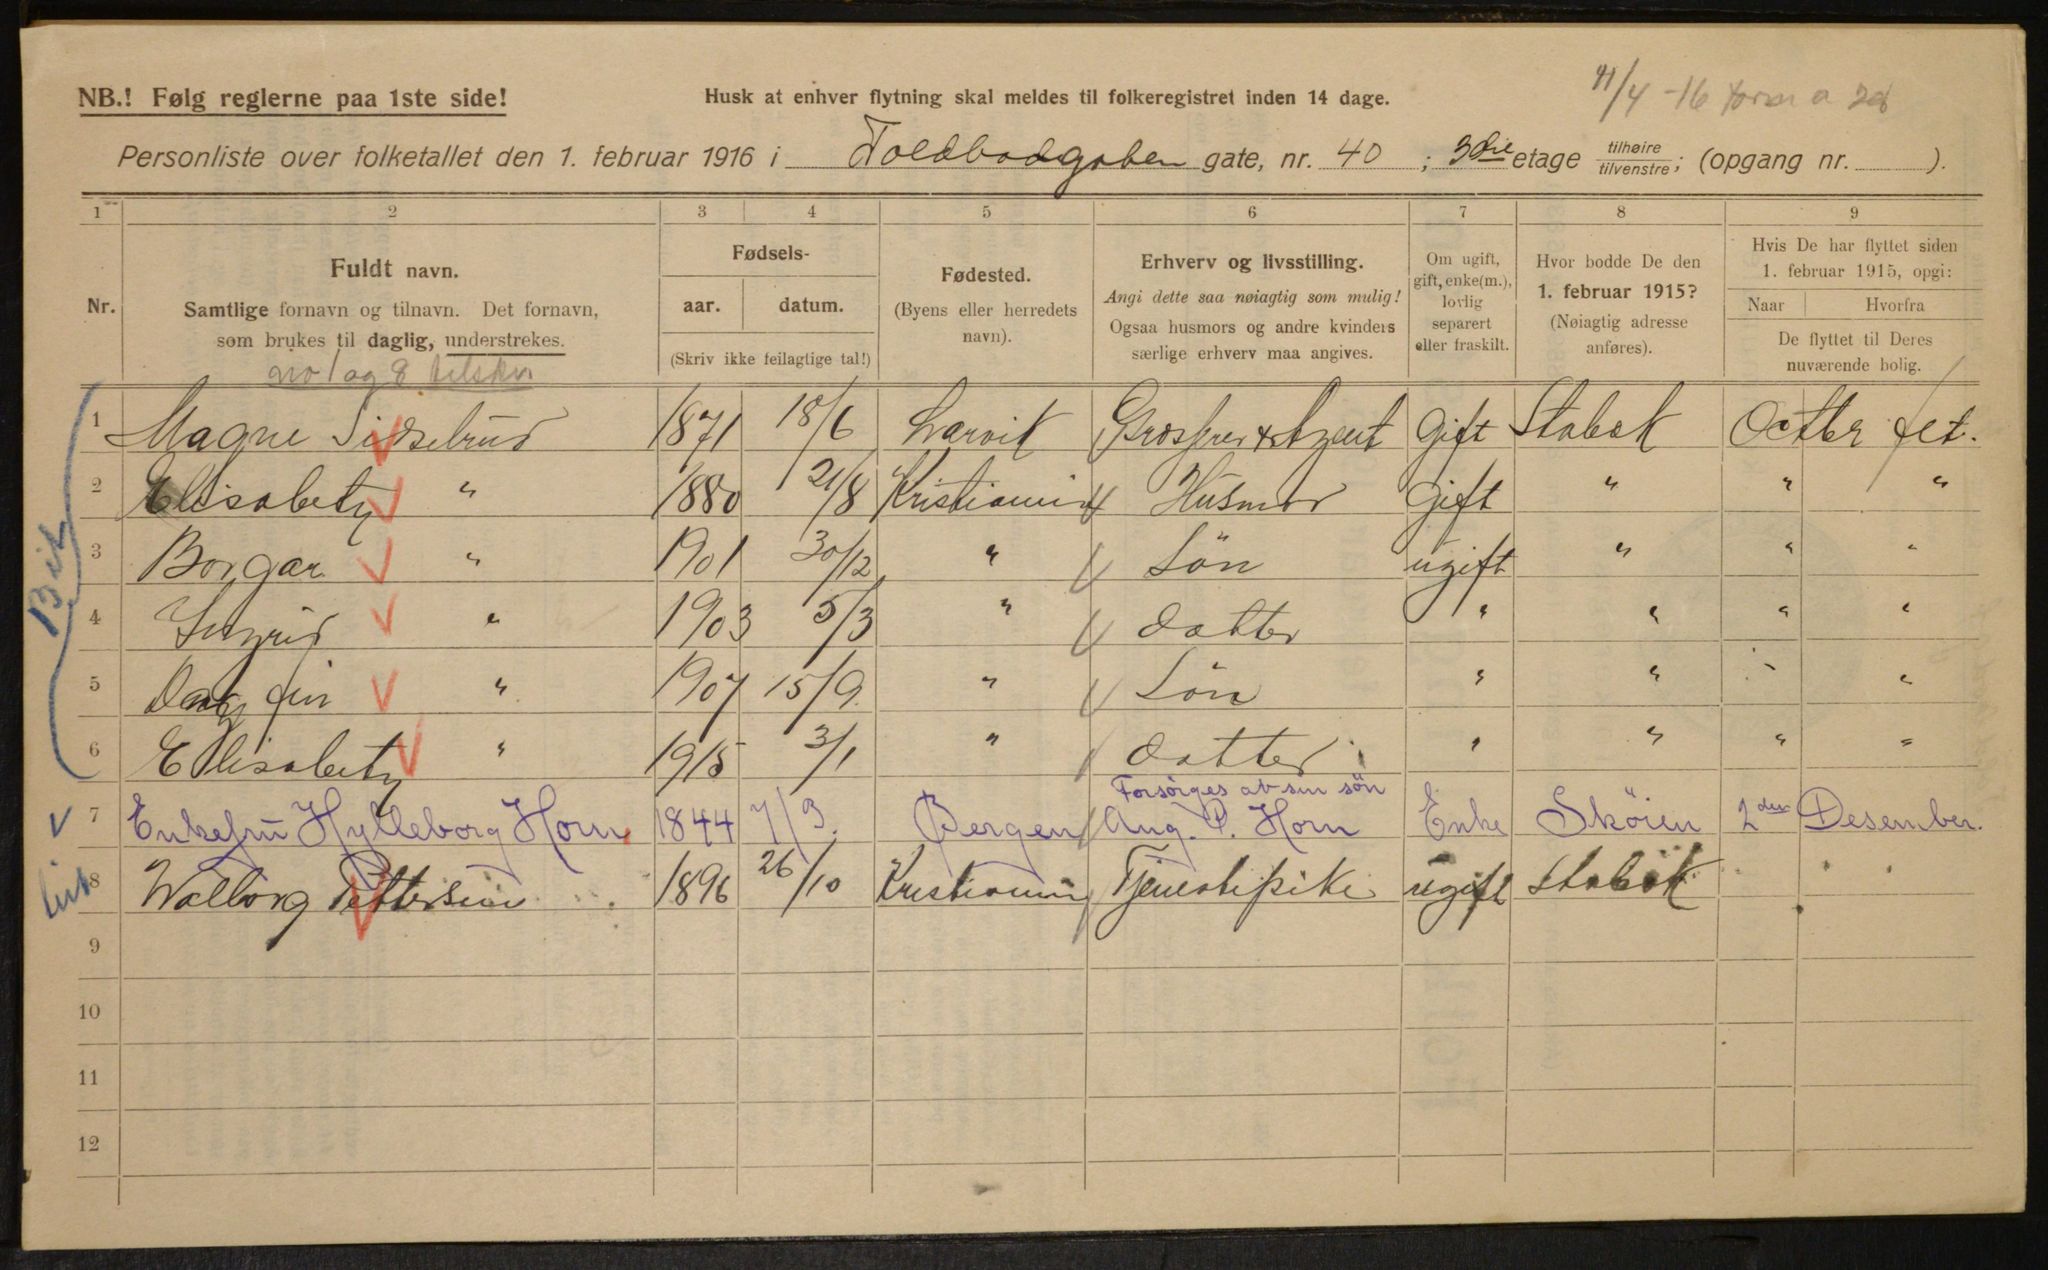 11/4 -16
NB.! Følg reglerne paa 1ste side!
Husk at enhver flytning skal meldes til folkeregistret inden 14 dage.
Personliste over folketallet den 1. februar 1916 i Toldbodgaden gate, nr. 40 ; 3die etage tilhøire tilvenstre; (opgang nr. ).
1 2 3 4 5 6 7 8 9
Nr.
Fuldt navn.
Samtlige fornavn og tilnavn. Det fornavn,
som brukes til daglig, understrekes.
no 1 og 8 tilskr
Fødsels-
aar. datum.
(Skriv ikke feilagtige tal!)
Fødested.
(Byens eller herredets
navn).
Erhverv og livsstilling.
Angi dette saa nøiagtig som mulig!
Ogsaa husmors og andre kvinders
særlige erhverv maa angives.
Om ugift,
gift, enke(m.),
lovlig
separert
eller fraskilt.
Hvor bodde De den
1. februar 1915?
(Nøiagtig adresse
anføres).
Hvis De har flyttet siden
1. februar 1915, opgi:
Naar Hvorfra
De flyttet til Deres
nuværende bolig.
1 Magne Sidselrud 1871 18/6 Larvik Grosserer & Agent Gift Stabek Octber
2 Elisabeth " 1880 21/8 Kristiania Husmor Gift " " "
3 Borgar " 1901 30/12 " Sön ugift " " "
4 Ingrid " 1903 5/3 " datter " " " "
5 Dagfin " 1907 15/9. " Sön " " " "
6 Elisabeth " 1915 3/1 " datter " " " "
Forsørges av sin sön
7 Enkefru Hylleborg Horn 1844 7/3. Bergen Aug. P. Horn Enke Skøien 2den Desember.
8 Walborg Pettersen 1896 26/10 Kristiania Tjenestepike ugift Stabek " "
9
10
11
12